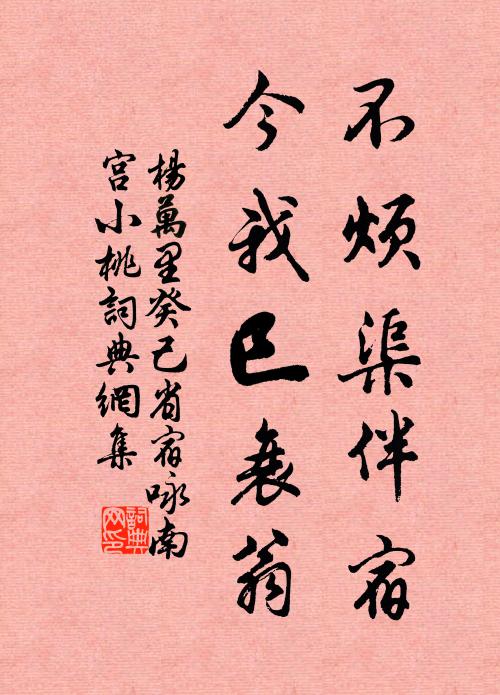 不煩渠伴宿
今我已衰翁
楊萬里癸巳省宿咏南
宮小桃詞典網集
詞典網印